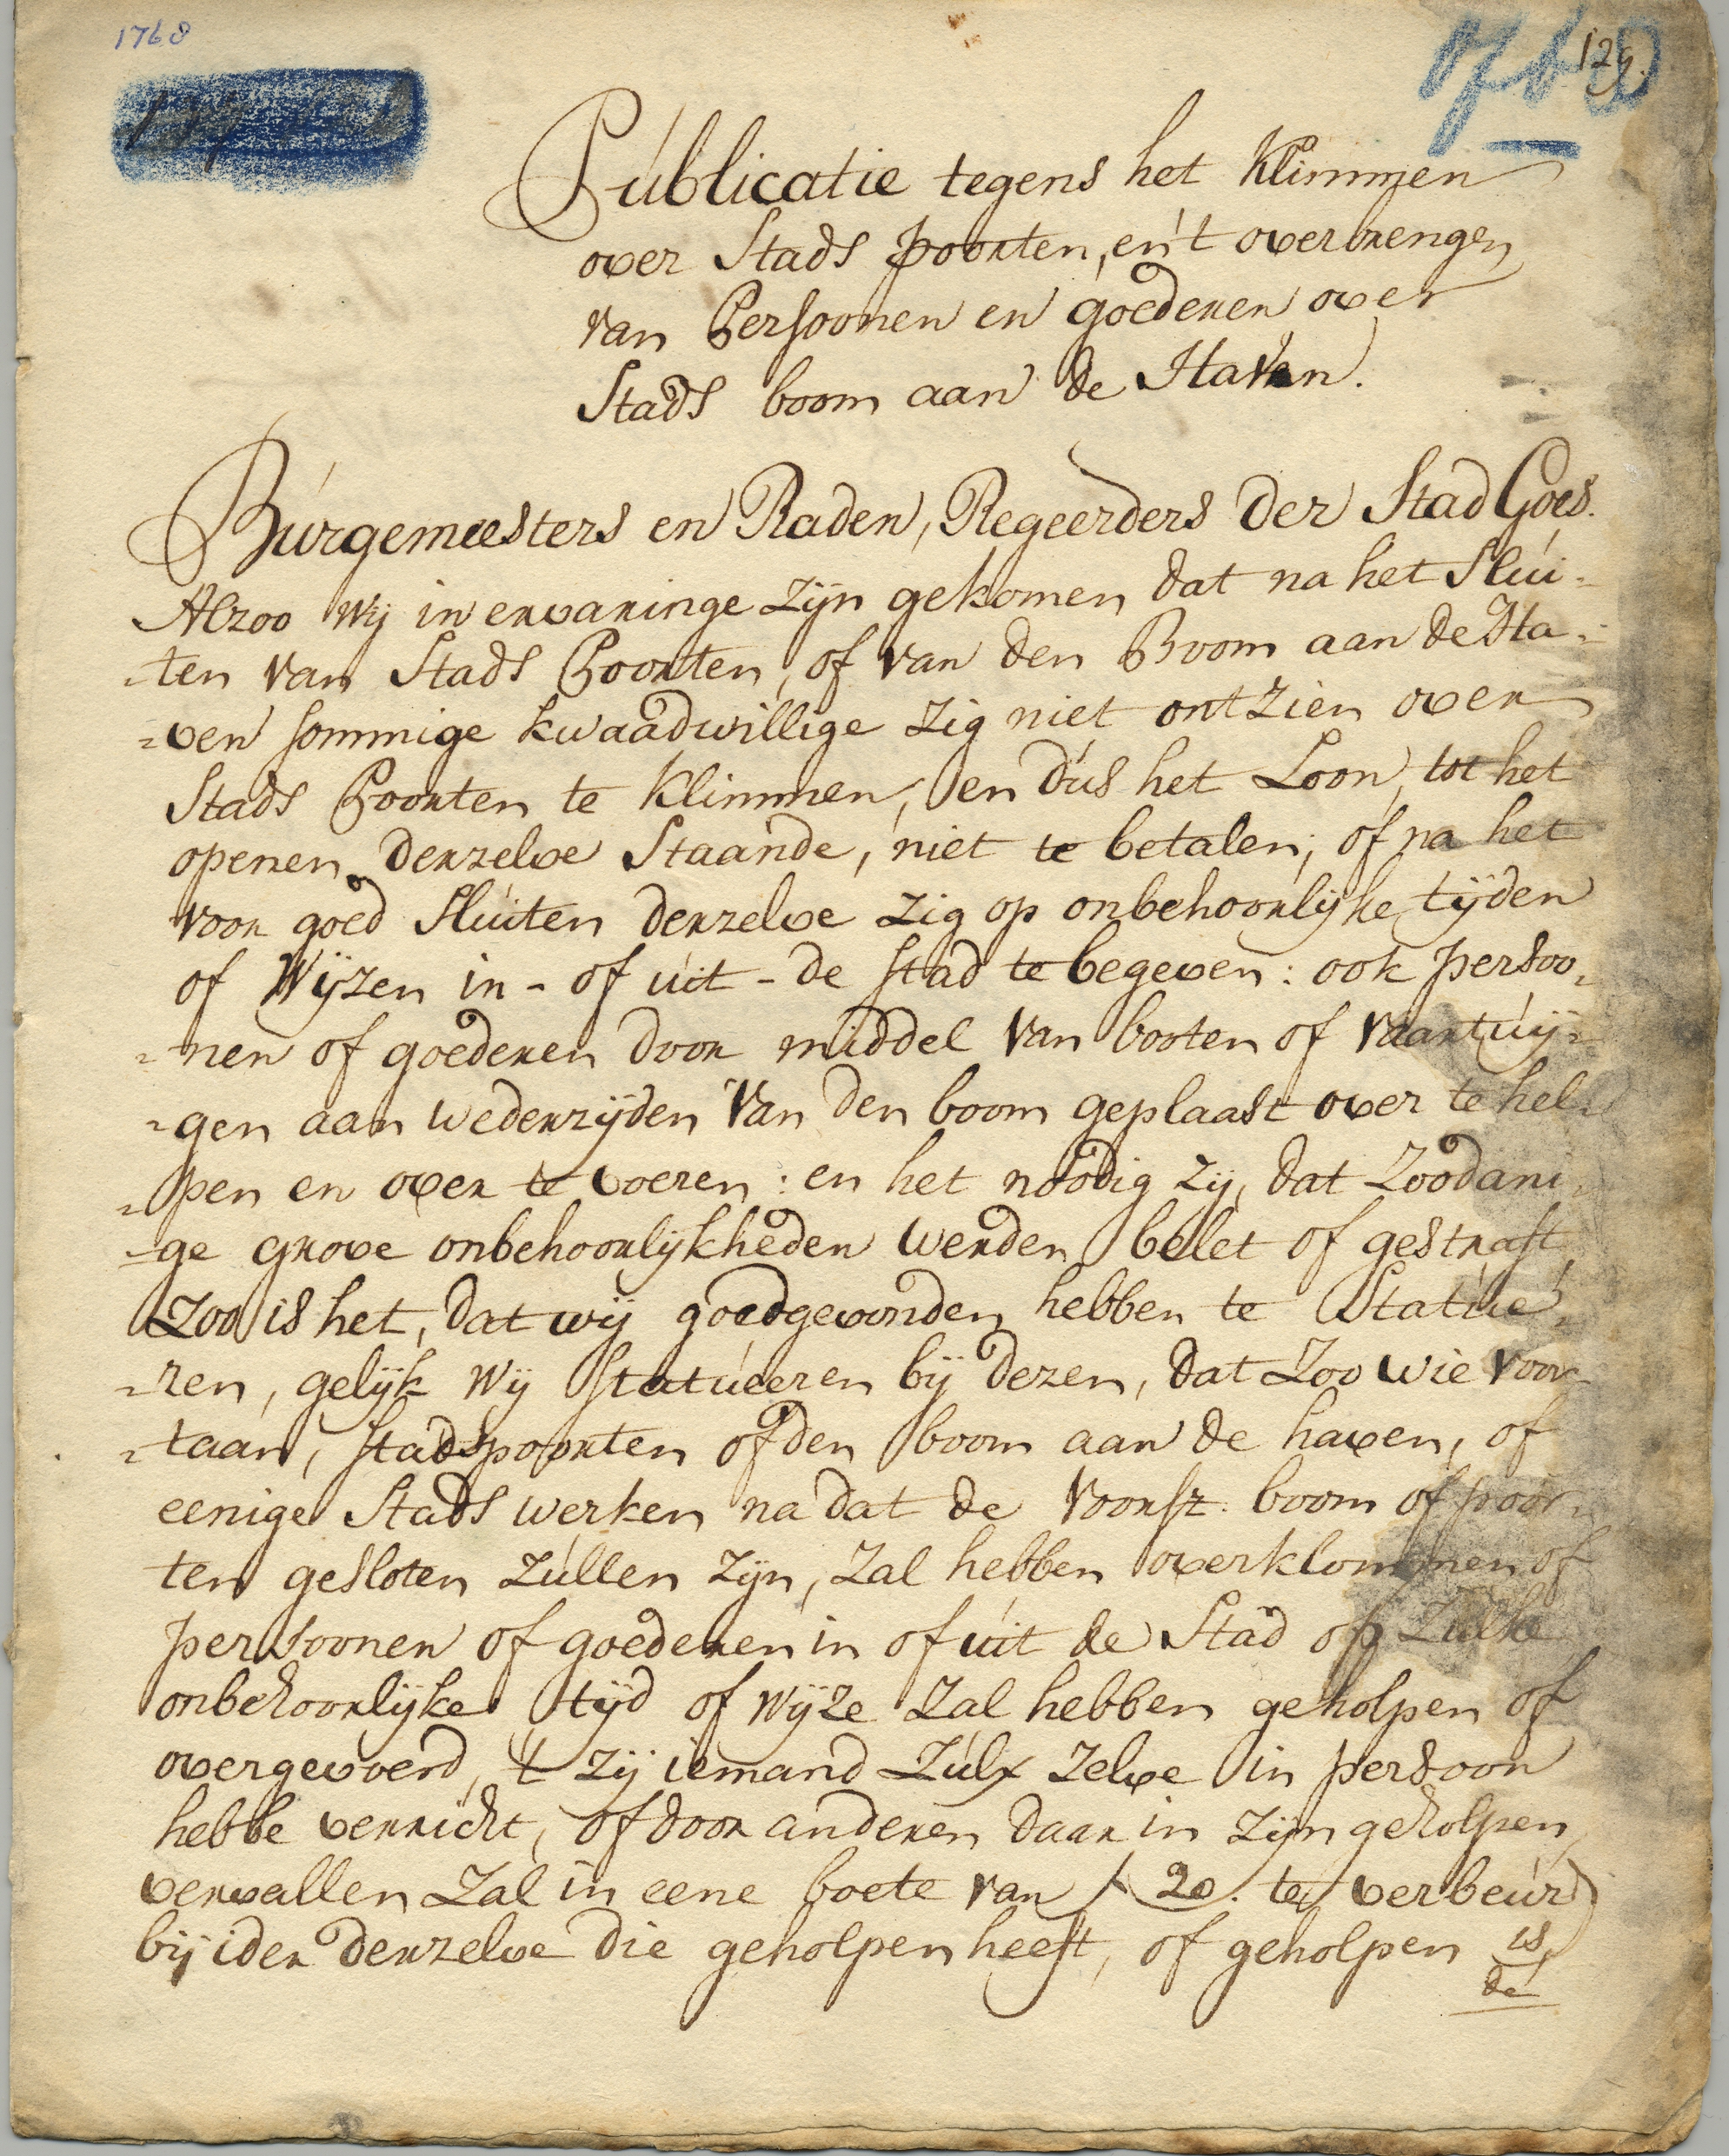 1768
129.
Publicatie tegens het Klimmen
over Stads poorten, en 't overbrengen
van Persoonen en goederen over
Stads boom aan de Haven.
Burgemeesters en Raden, Regeerders der Stad Goes.
Alzoo Wij in ervaringe zijn gekomen dat na het Slui-
-ten van Stads Poorten, of van den Boom aan de Ha-
-ven sommige kwaadwillige zig niet ontzien over
Stads Poorten te Klimmen, en dus het Loon, tot het
openen derzelve Staande, niet te betalen; of na het
voor goed Sluiten derzelve zig op onbehoorlijke tijden
of Wijzen in - of uit - de stad te begeven: ook persoo-
-nen of goederen door middel van booten of vaartuij-
-gen aan wederzijden van den boom geplaast over te hel-
-pen en over te voeren: en het noodig zij, dat zoodani-
-ge grove onbehoorlijkheden werden belet of gestraft
Zoo is het, dat wij goedgevonden hebben te Statue-
-ren, gelijk Wij statueeren bij dezen, dat Zoo wie voor-
-taan, stadspoorten of den boom aan de haven, of
eenige Stads werken na dat de voorsz. boom of poor-
ten gesloten zullen zijn, zal hebben overklommen of
persoonen of goederen in of uit de Stad op zulke
onbehoorlijke tijd of wijze zal hebben geholpen of
overgevoerd, 't zij iemand zulx zelve in persoon
hebbe verricht, of door anderen daar in zijn geholpen,
vervallen zal in eene boete van ƒ 20. te verbeurd
bij ider derzelve die geholpen heeft, of geholpen is,
de